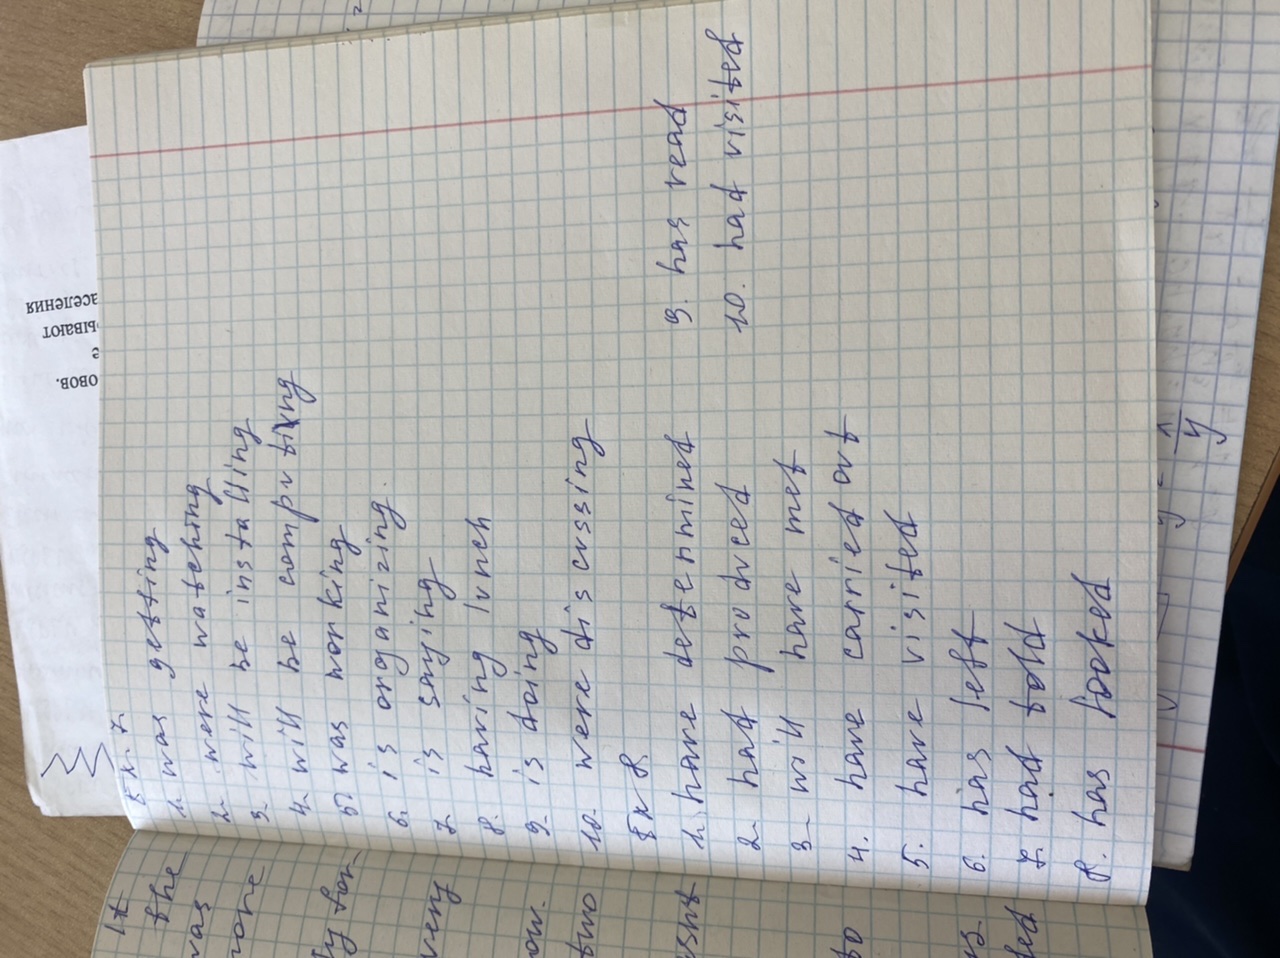 Ex 7
1. was getting
2. were watching
3. will be installing
4. will be computing
5. was working
6. is organizing
7. is saying
8. having lunch
9. is doing
10. were discussing
Ex 8
1. have determined
2. had produced
3. will have met
4. have carried out
5. have visited
6. has left
7. had told
8. has looked
9. has read
10. had visited
the
was
more
very
now.
two
to
аселения
ывают
е
овов.